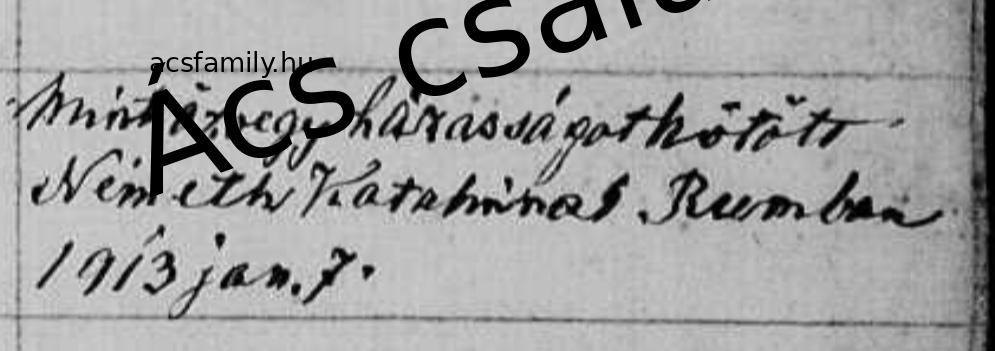 Ács család
acsfamily.hu
Mint özvegy házasságot kötött
Németh Katalinnal Rumban
1913 jan. 7.